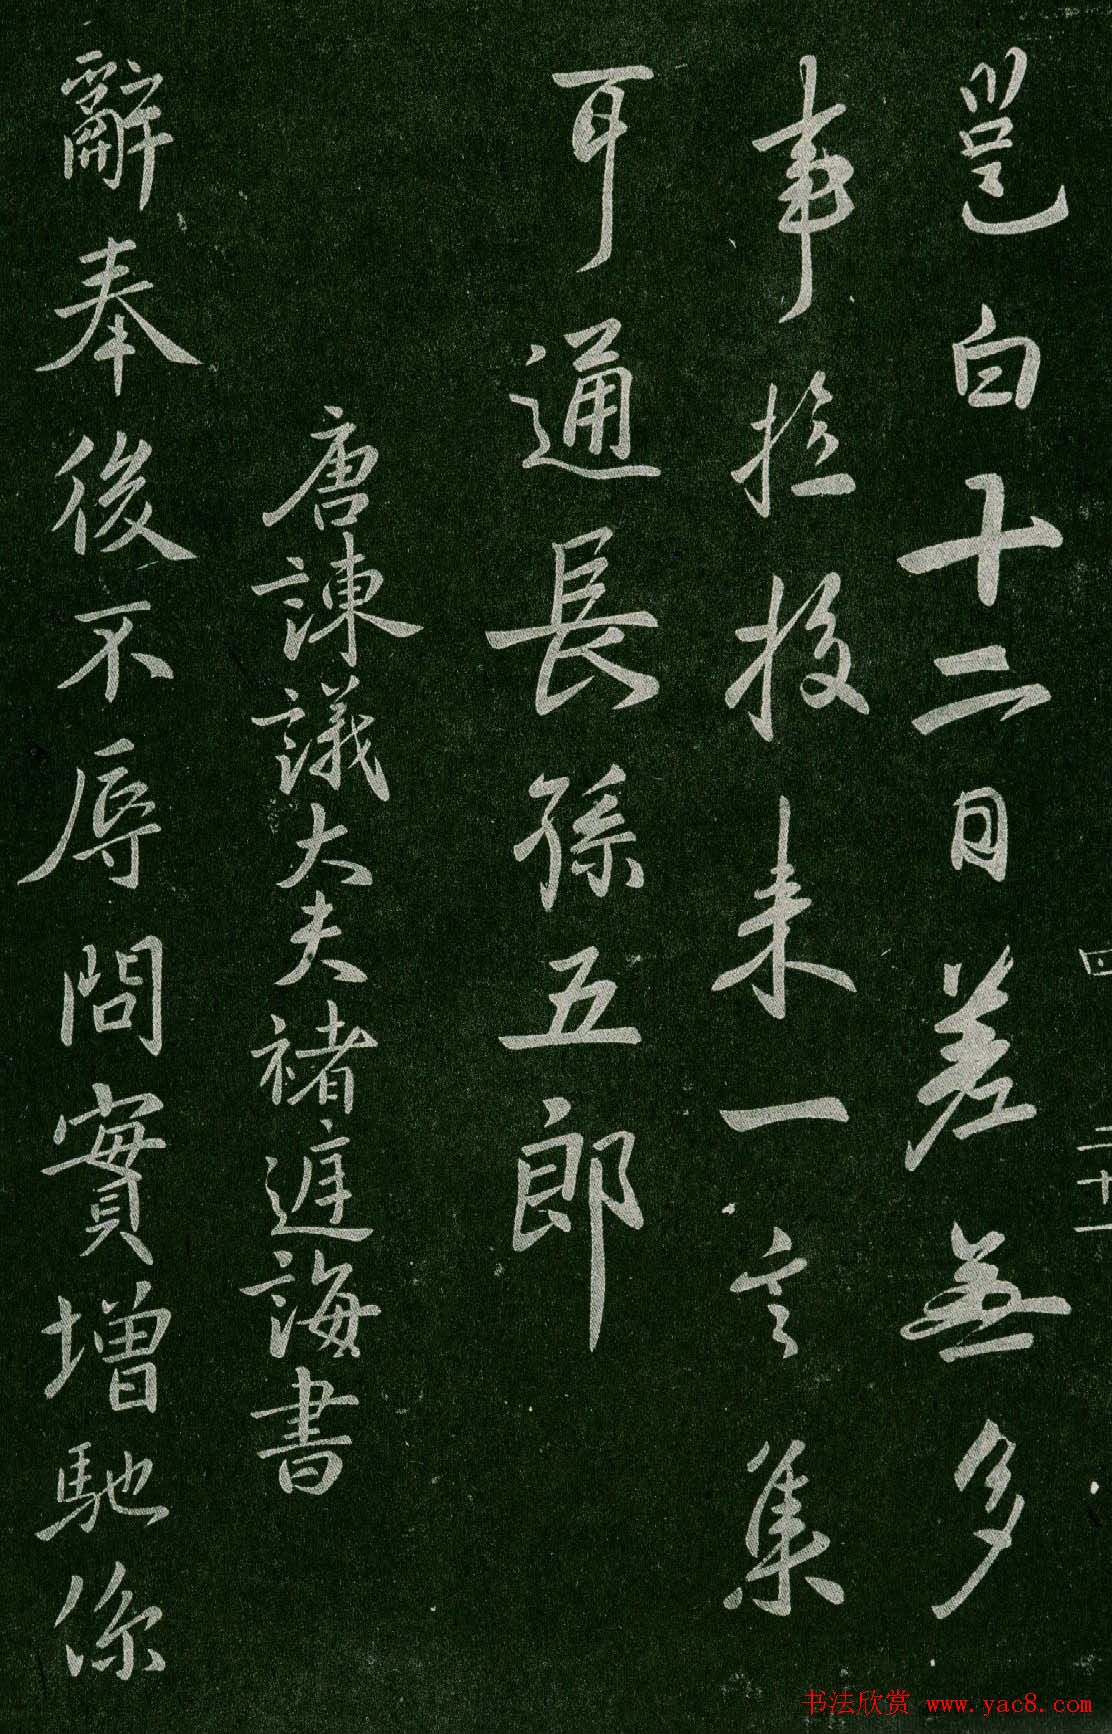 四 二十一
邕白十二日差無多
事拴投来一言集
耳通長孫五郎
唐諫議大夫褚遂誨書
辭奉後不辱問實增馳係
书法欣赏 www.yac8.com